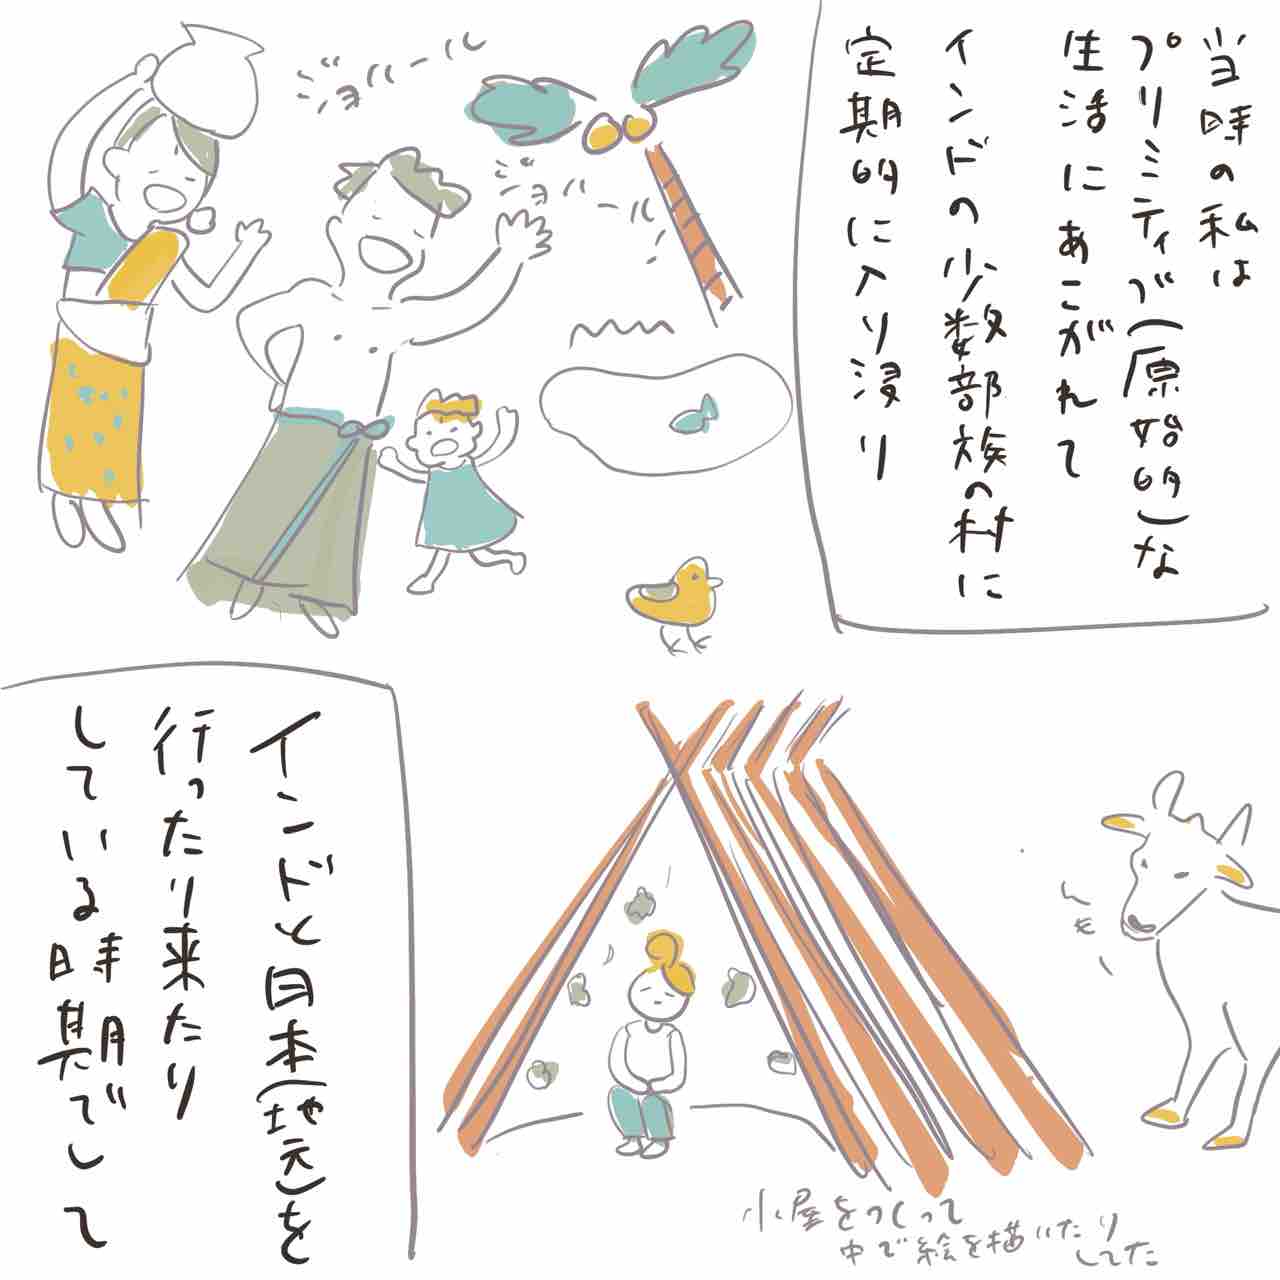 当時の私は
プリミティブ(原始的)な
生活にあこがれて
インドの少数部族の村に
定期的に入り浸り
ジョハール
ジョハール
インドと日本(地元)を
行ったり来たり
している時期でして
小屋をつくって
中で絵を描いたり
してた